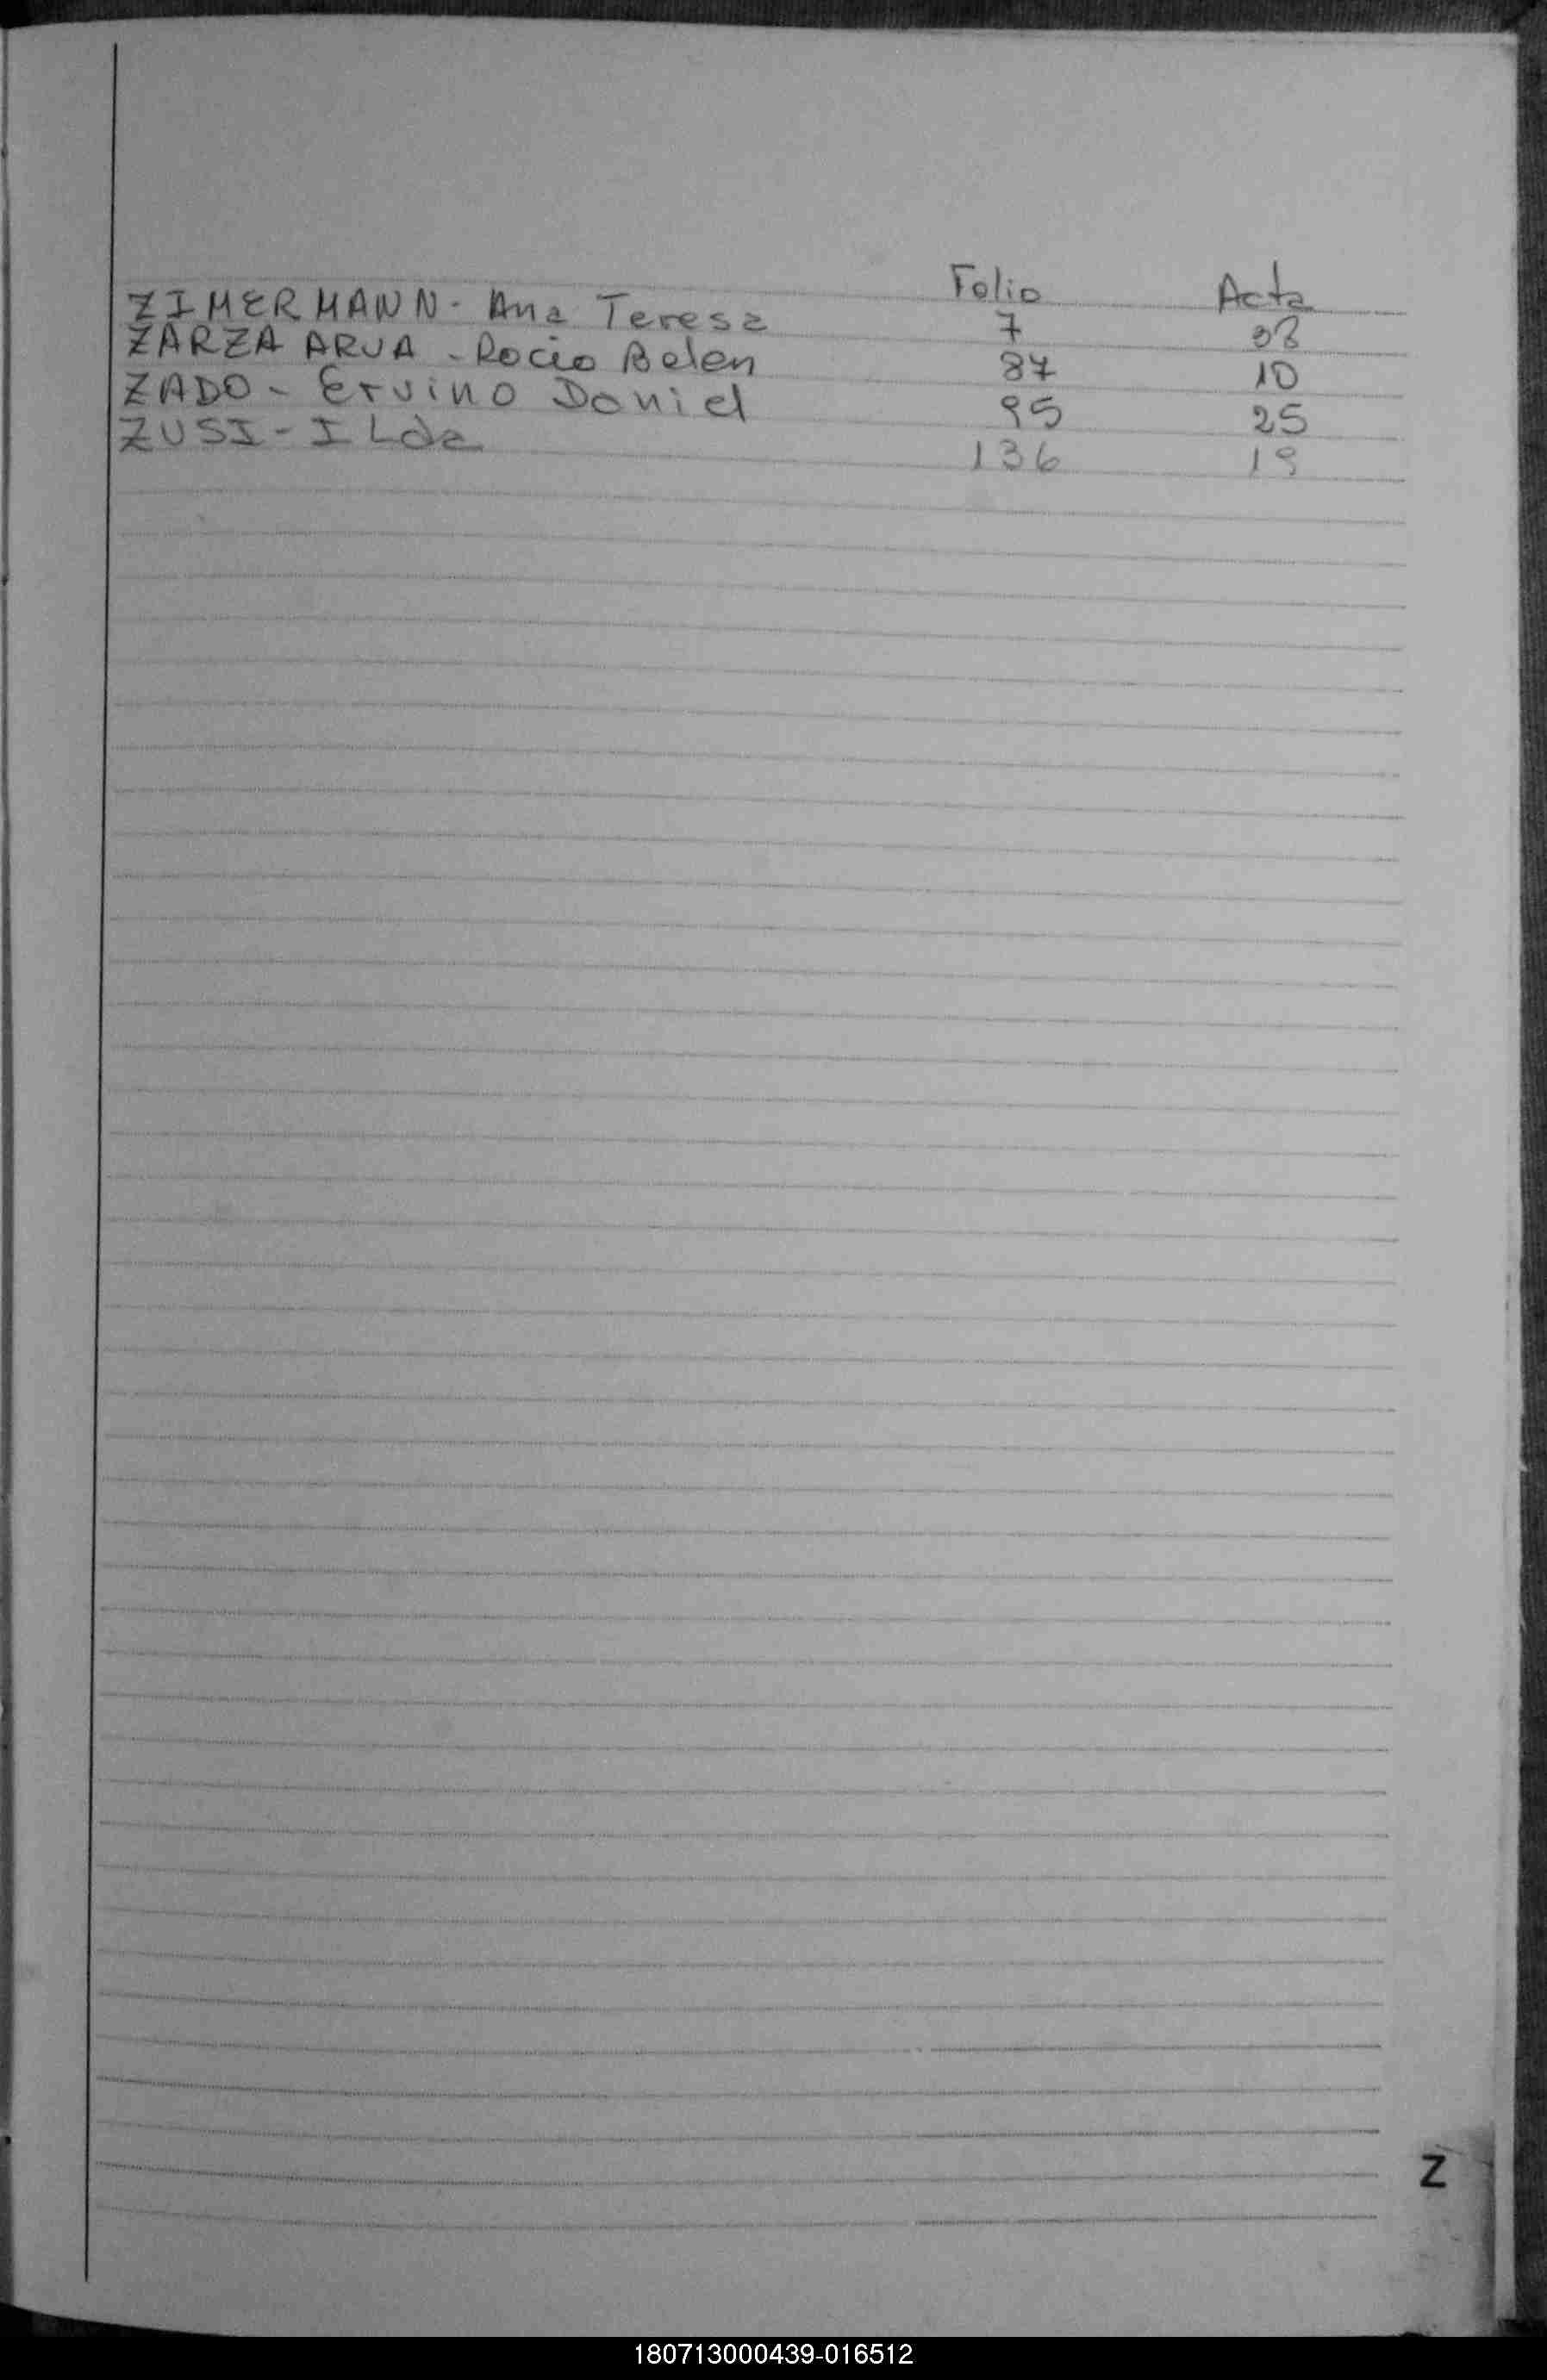 Folio Acta
ZIMERMANN - Ana Teresa 7 08
ZARZA ARUA - Rocio Belen 87 10
ZADO - Ervino Daniel 95 25
ZUSI - ILda 136 19
Z
180713000439-016512